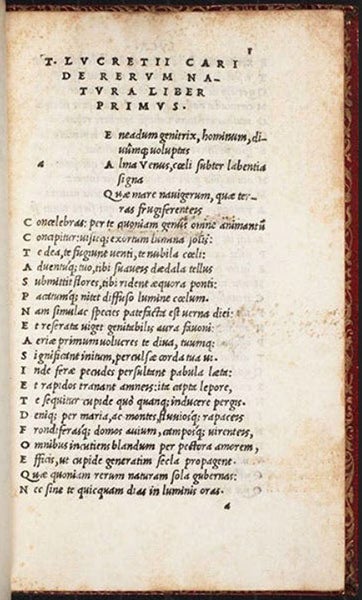 1
T. LVCRETII CARI
DE RERVM NA-
TVRA LIBER
PRIMVS.
E neadum genitrix, hominum, di-
uûmq; uoluptas
A lma Venus, cœli subter labentia
signa
Q uæ mare nauigerum, quæ ter-
ras frugiferenteis
C oncelebras: per te quoniam genus omne animantũ
C oncipitur: uisitq; exortum lumina solis:
T e dea, te fugiunt uenti, te nubila cœli:
A duentuq; tuo, tibi suaueis dædala tellus
S ubmittit flores, tibi rident æquora ponti:
P acatumq; nitet diffuso lumine cœlum.
N am simulac species patefacta est uerna diei:
E t reserata uiget genitabilis aura fauoni:
A eriæ primum uolucres te diua, tuumq;
S ignificant initum, perculsæ corda tua ui.
I nde feræ pecudes persultant pabula læta:
E t rapidos tranant amneis: ita capta lepore,
T e sequitur cupide quò quanq; inducere pergis.
D eniq; per maria, ac montes, fluuiosq; rapaces
F rondiferasq; domos auium, camposq; uirenteis,
O mnibus incutiens blandum per pectora amorem,
E fficis, ut cupide generatim secla propagent.
Q uæ quoniam rerum naturam sola gubernas:
N ec sine te quicquam dias in luminis oras
a